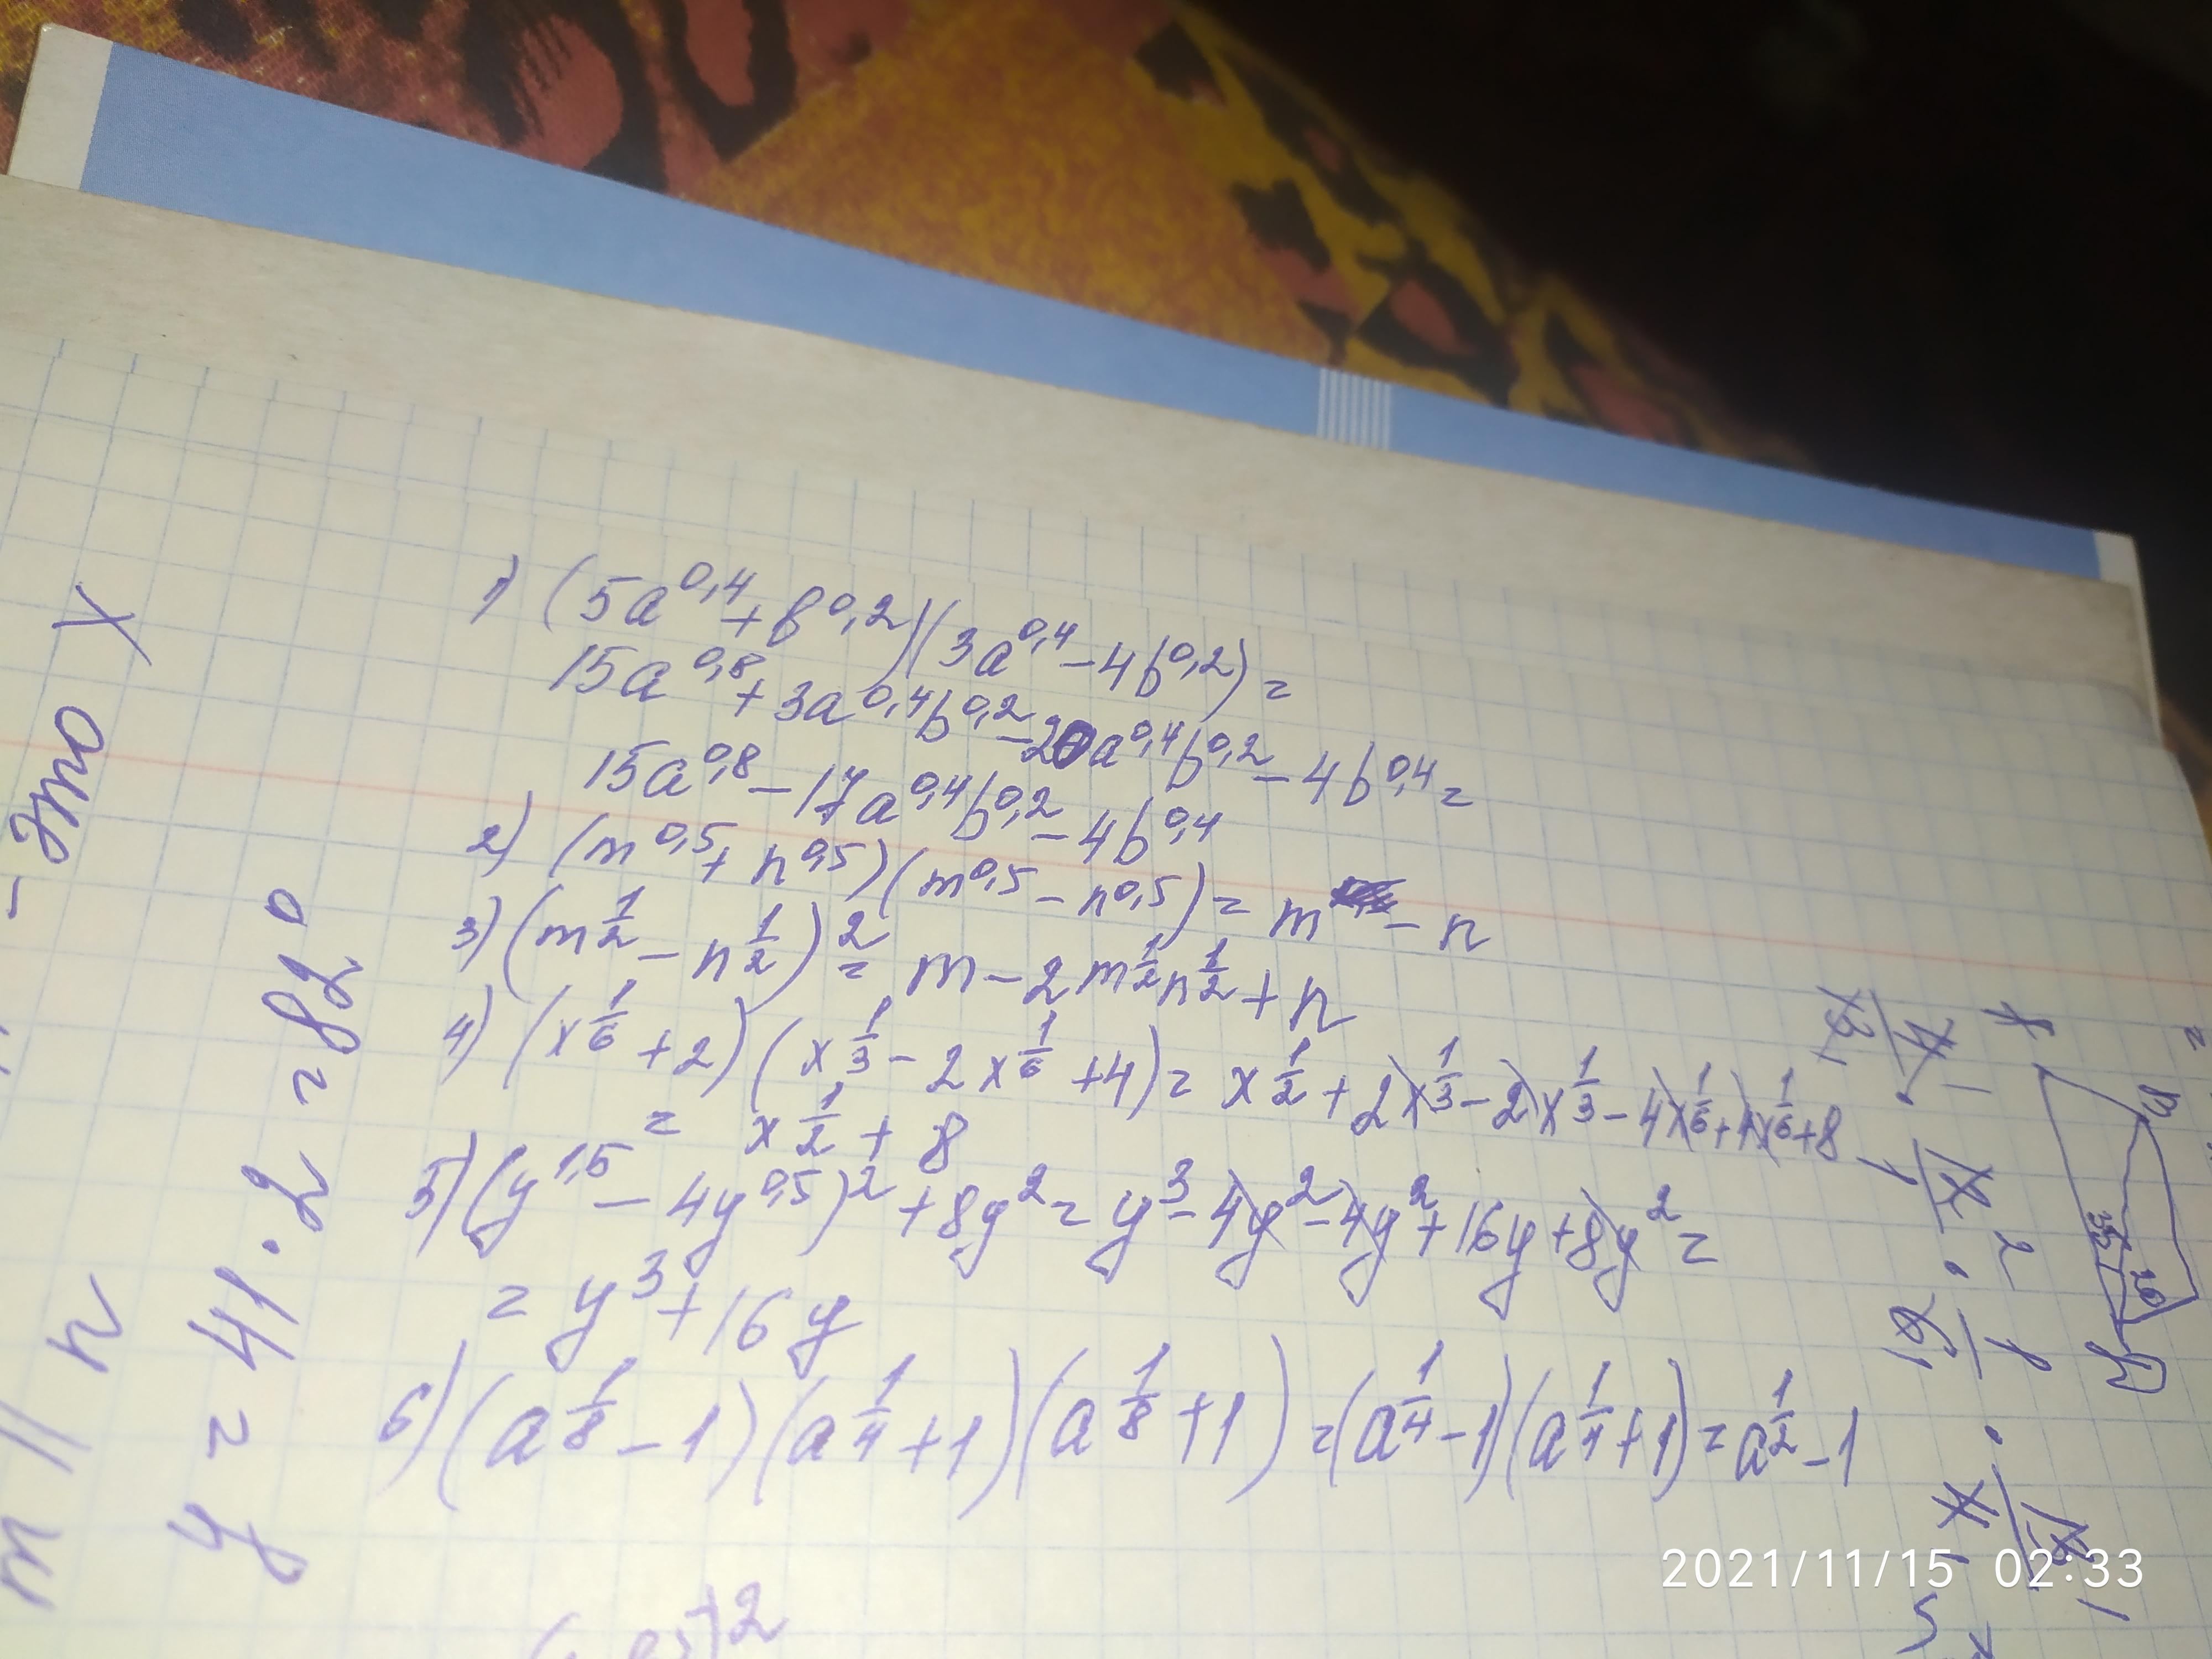 1) (5a^0,4 + b^0,2)(3a^0,4 - 4b^0,2) =
15a^0,8 + 3a^0,4 b^0,2 - 20a^0,4 b^0,2 - 4b^0,4 =
15a^0,8 - 17a^0,4 b^0,2 - 4b^0,4
2) (m^0,5 + n^0,5)(m^0,5 - n^0,5) = m - n
3) (m^1/2 - n^1/2)^2 = m - 2m^1/2 n^1/2 + n
4) (x^1/6 + 2)(x^1/3 - 2x^1/6 + 4) = x^1/2 + 2x^1/3 - 2x^1/3 - 4x^1/6 + 4x^1/6 + 8
= x^1/2 + 8
5) (y^1,5 - 4y^0,5)^2 + 8y^2 = y^3 - 4y^2 - 4y^2 + 16y + 8y^2 =
= y^3 + 16y
6) (a^1/8 - 1)(a^1/4 + 1)(a^1/8 + 1) = (a^1/4 - 1)(a^1/4 + 1) = a^1/2 - 1
- Это X
y = 41 · 2 = 82°
m || n
2021/11/15 02:33